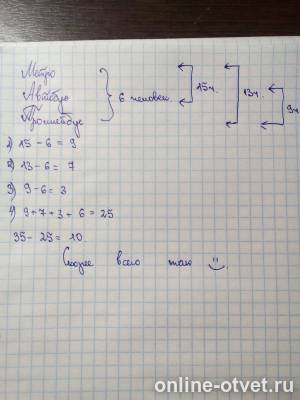 Метро
Автобус
Троллейбус
6 человек
15ч.
13ч.
9ч
1) 15 - 6 = 9
2) 13 - 6 = 7
3) 9 - 6 = 3
4) 9 + 7 + 3 + 6 = 25
35 - 25 = 10.
Скорее всего так
online-otvet.ru